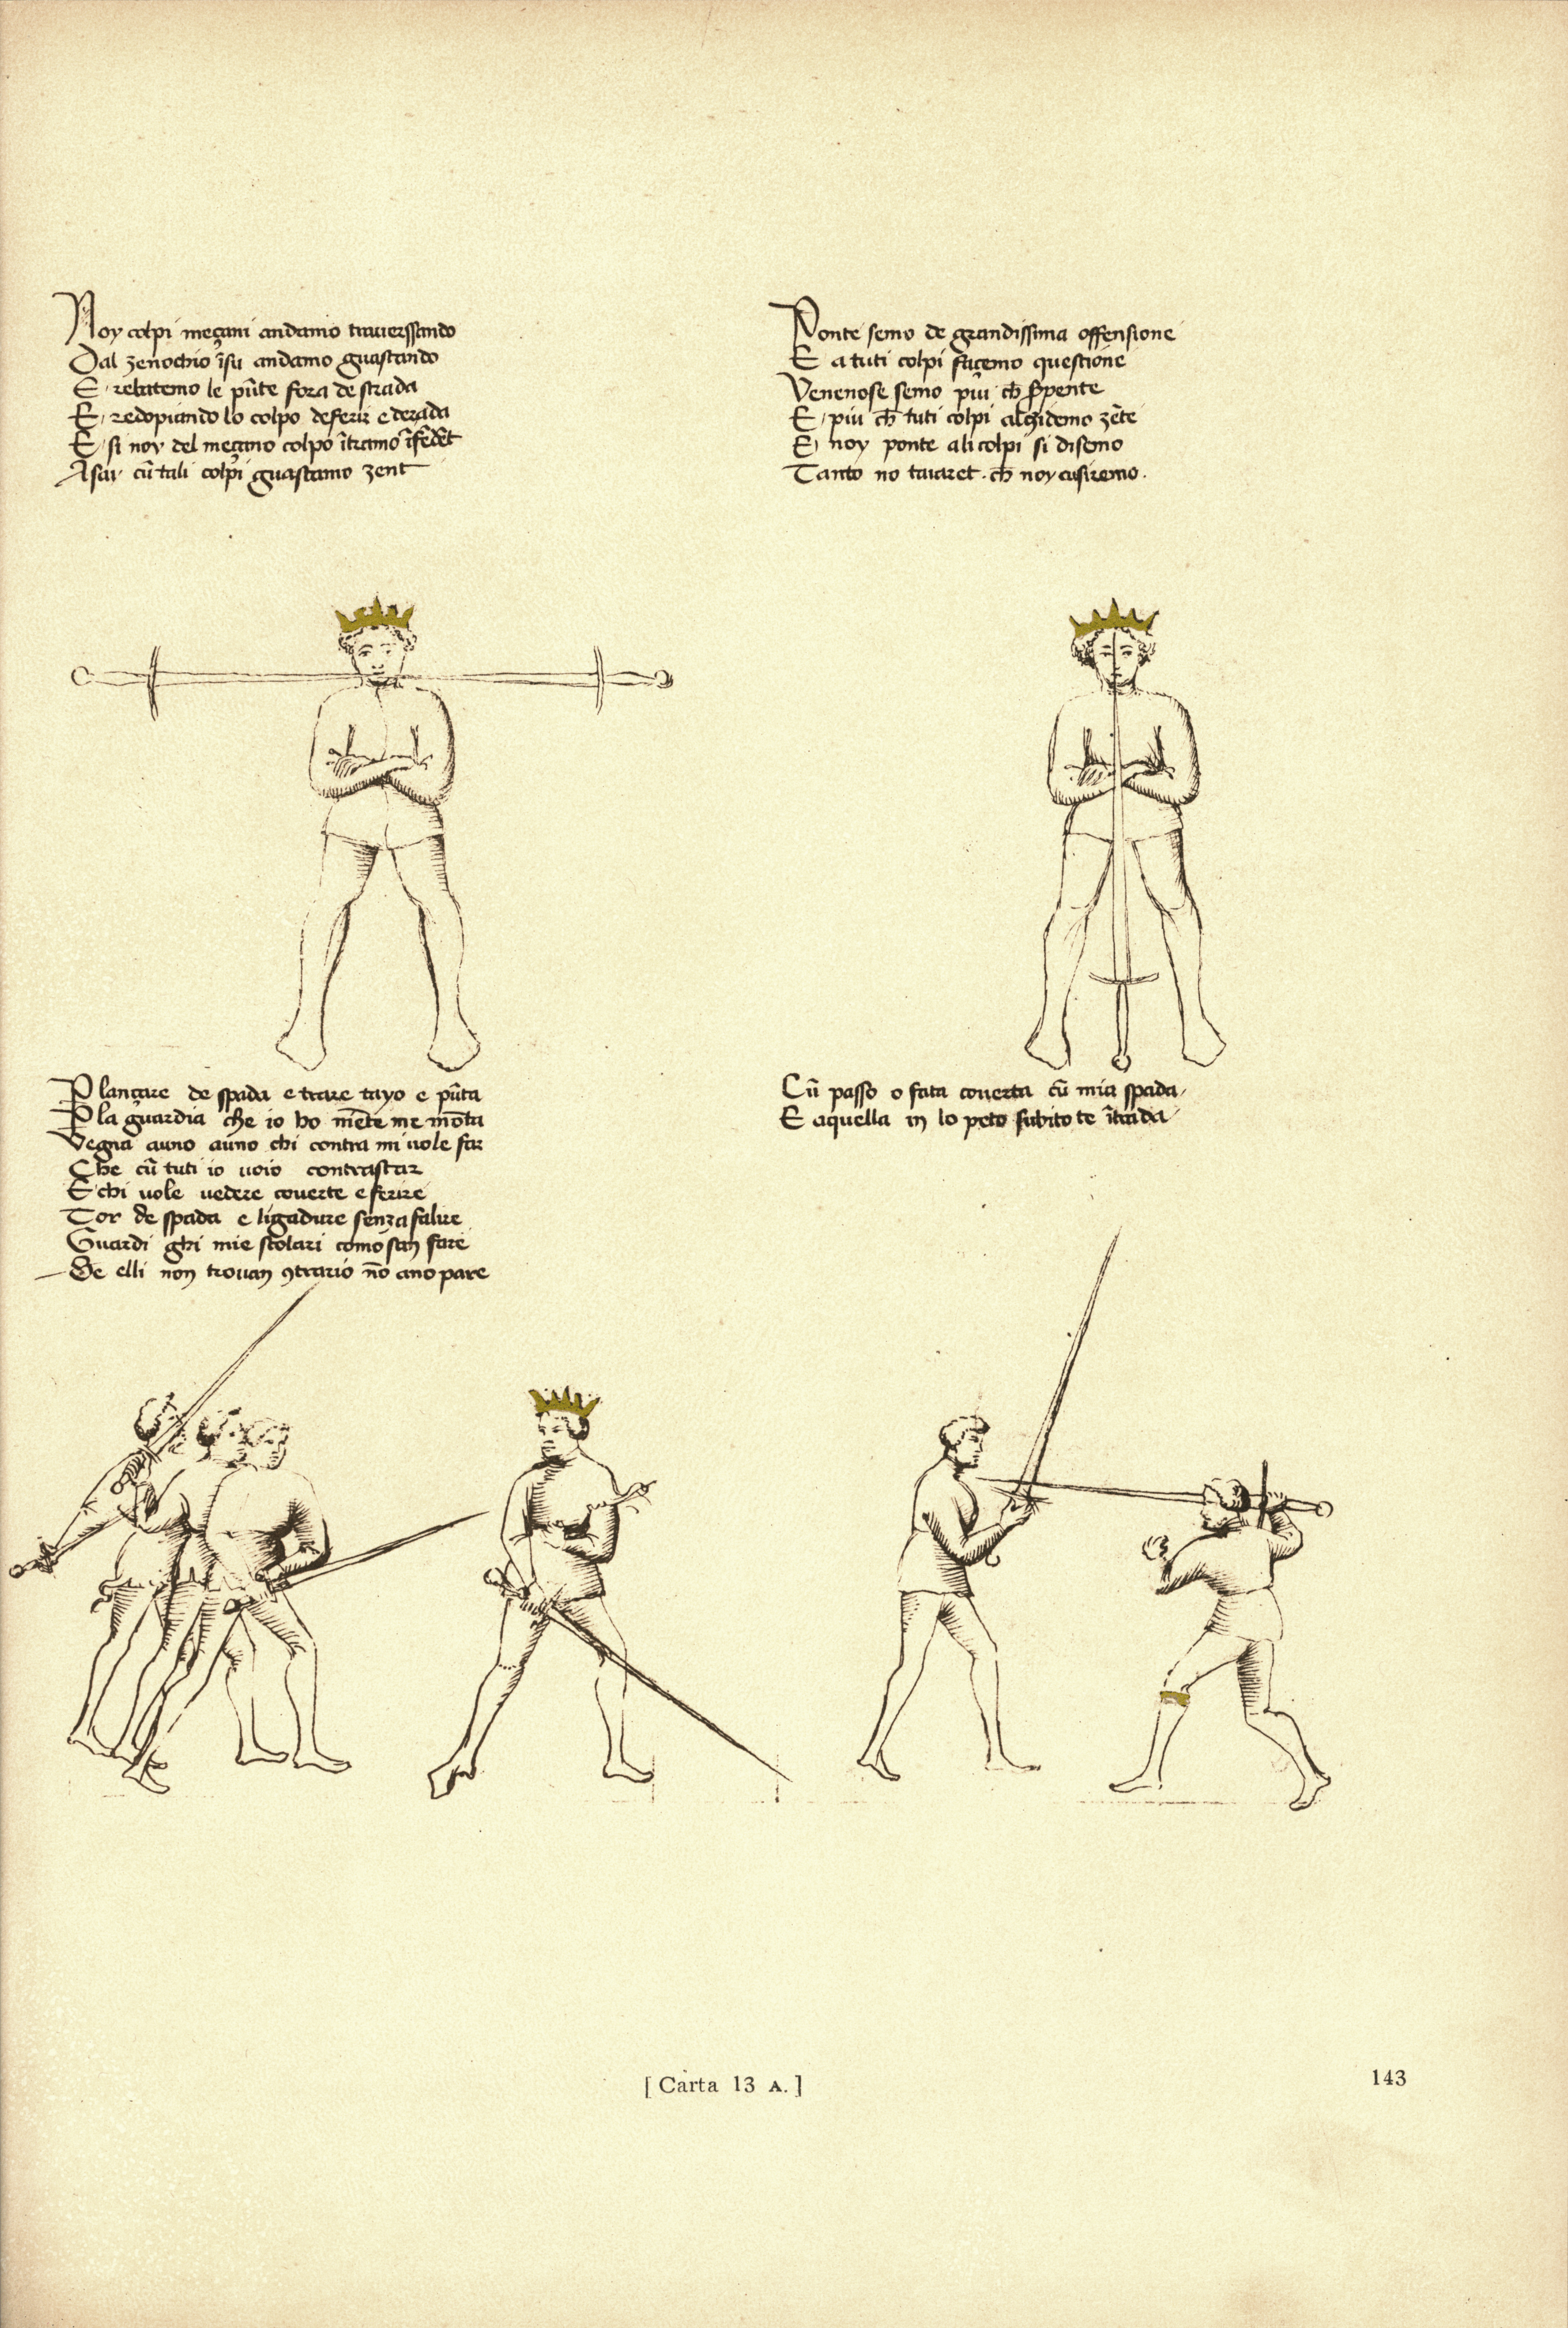 Noy colpi meçani andamo trauerssando
Dal zenochio ĩsu andamo guastando
E rebatemo le pũte fora de strada
E redopiando lo colpo de ferir e derada
E si noy del meçano colpo ĩtramo ĩ fẽdẽt
Asai cũ tali colpi guastamo zent
Ponte semo de grandissima offensione
E a tuti colpi façemo questione
Venenose semo piu ch̃ s̃pente
E piu ch̃ tuti colpi alcidemo zẽte
E noy ponte ali colpi si disemo
Tanto no taiaret ch̃ noy cusiremo.
P lançare de spada e trare tayo e pũta
P la guardia che io ho mẽte me mõta
Vegna auno auno chi contra mi uole far
Che cũ tuti io uoio contrastar
E chi uole uedere couerte e ferire
Tor de spada e ligadure senza falire
Guardi ghi mie scolari como san fare
Se elli non trouan ꝯtrario nõ ano pare
Cũ passo o fata couerta cũ mia spada
E aquella in lo peto subito te ĩtrada
[Carta 13 A.]
143